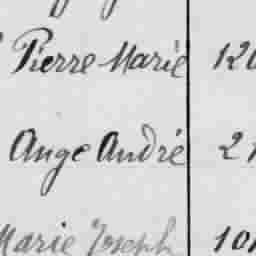 Pierre Marie 120
Ange André 21
Marie Joseph 101